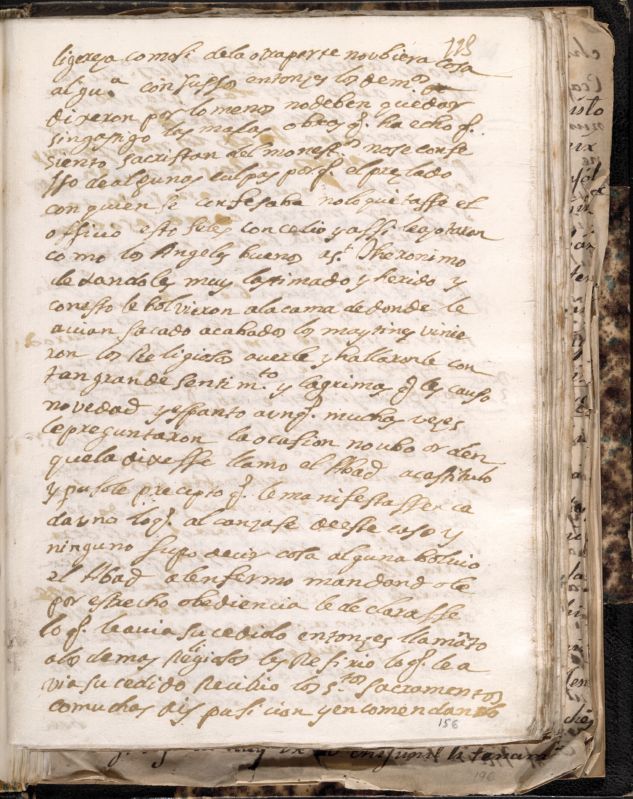 118
ligereza como si de la otra parte no ubiera cosa
alguᵃ confusso entonzes los demoˢ
dixeron por lo menos no deben quedar
sin castigo las malas obras q̄. ha echo q̄.
siendo sacristan del monestº no se confe
sso de algunas culpas porq̄. el prelado
con quien se confesaba no le quitasse el
officio esto se les concedio y assi le açotaron
como los Angeles buenos a sᵗ. Jheronimo
dexandole muy lastimado y herido y
con esto le bolvieron a la cama de donde le
avian sacado acabados los maytines vinie
ron los Religiosos a verle y hallaronle con
tan grande sentimᵗᵒ y lagrimas q̄ les causo
novedad y espanto aunq̄. muchas vezes
le preguntaron la ocasion no ubo orden
que la dixesse llamo el Abad a capitulo
y pusole precepto q̄. le manifestasse ca
da uno loq̄. alcanzase de este caso y
ninguno supo decir cosa alguna bolvio
el Abad al enfermo mandandole
por estrecho obediencia le declarasse
lo q̄. le avia sucedido entonzes llamãdo
a los demas Religiosos les refirio lo q̄. le a
via sucedido Recibio los sᵗᵒˢ Sacramentos
co muchas disposicion y encomendandº
156
196